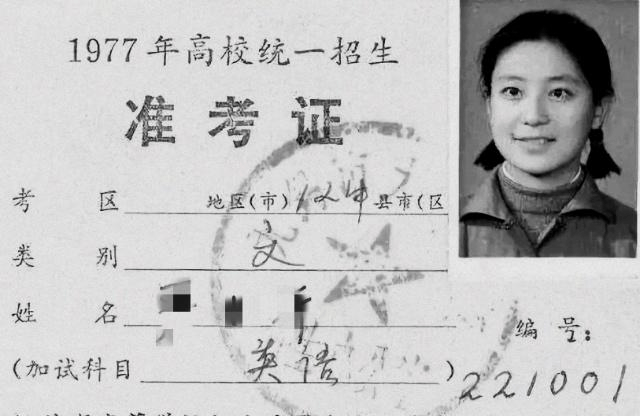 1977年高校统一招生
准考证
考区 地区(市) 12中 县市(区
类别 文
姓名
(加试科目 英语)
编号:
221001